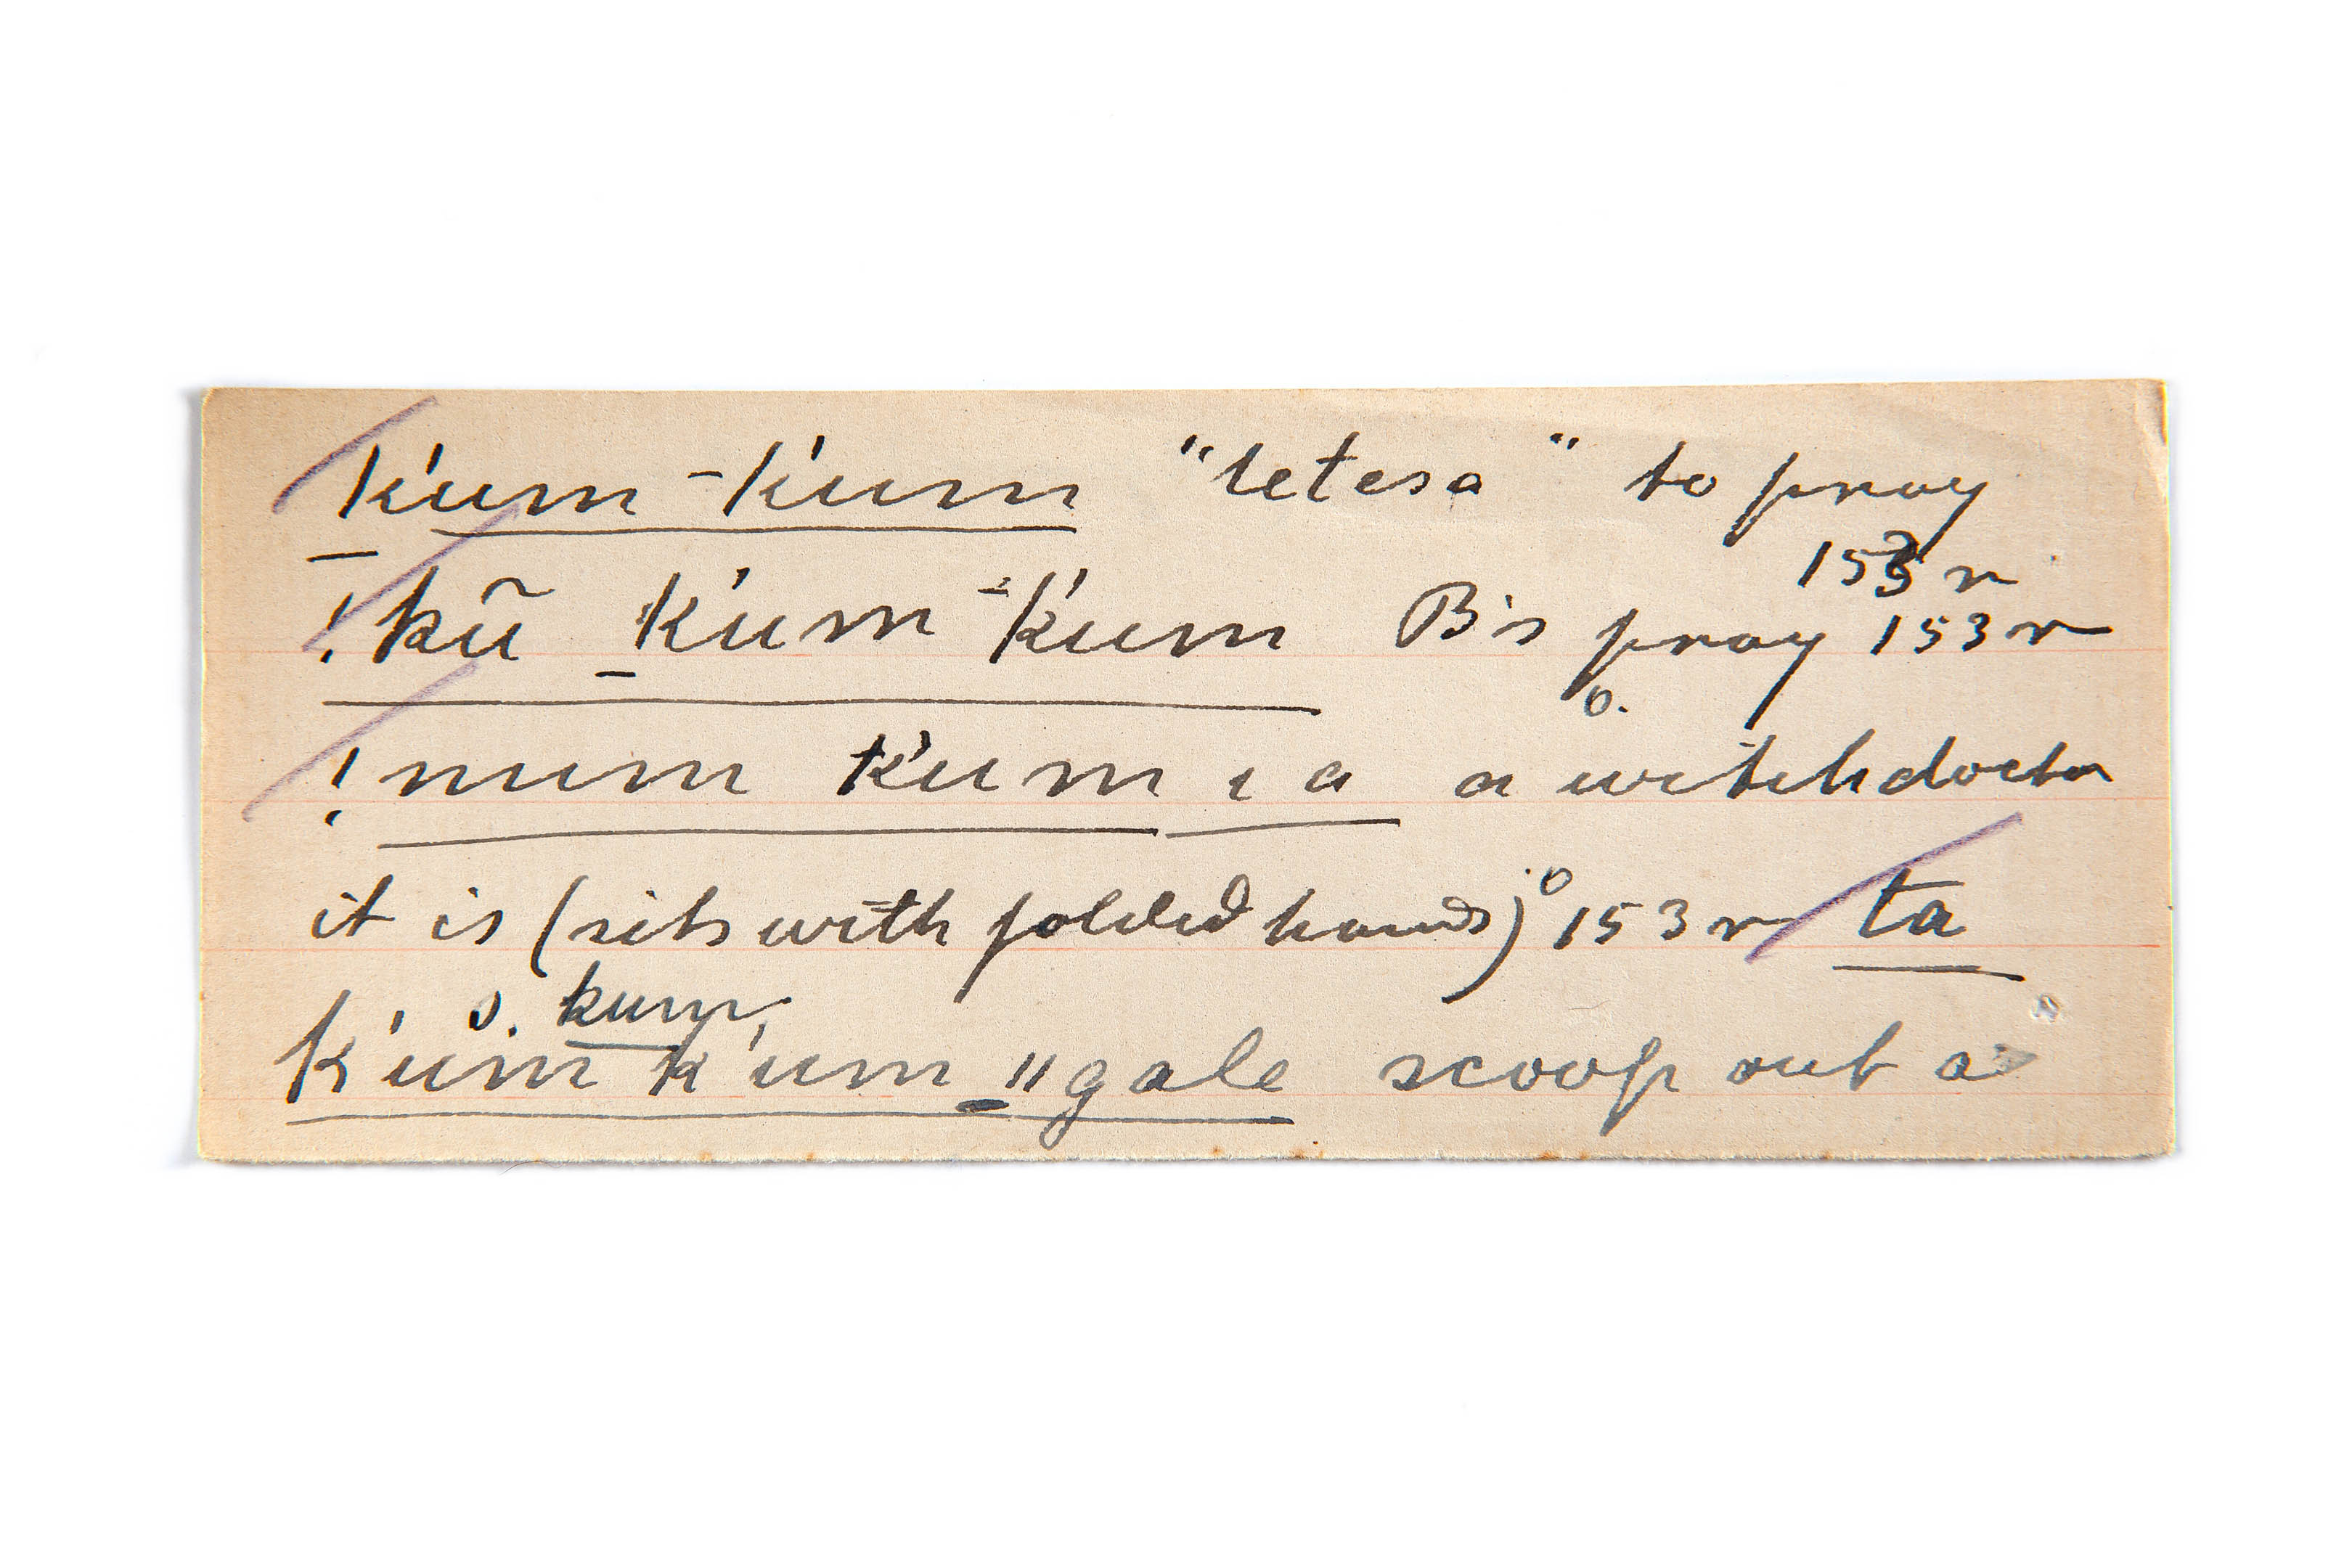 k'um-k'um "tetesa" to pray
153 r
!kũ k'um-k'um B's pray 153 r
o.
!num k'um ı a a witchdoctor
it is (sits with folded hands)° 153 r ta
o. kum
k'um k'um ǁgale scoop out a